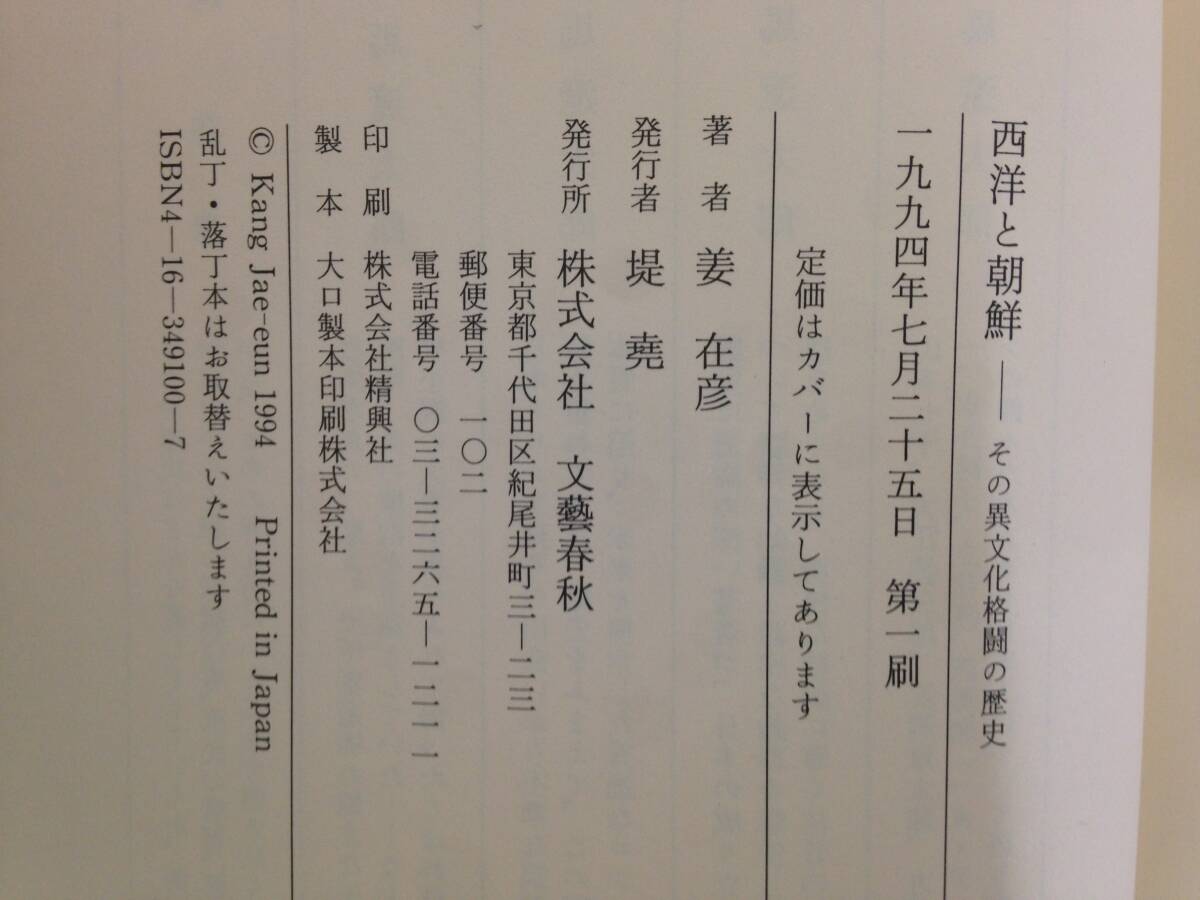 西洋と朝鮮――その異文化格闘の歴史
一九九四年七月二十五日 第一刷
定価はカバーに表示してあります
著者 姜在彦
発行者 堤堯
発行所 株式会社 文藝春秋
東京都千代田区紀尾井町三―二三
郵便番号 一〇二
電話番号 〇三―三二六五―一二一一
印刷 株式会社精興社
製本 大口製本印刷株式会社
© Kang Jae-eun 1994 Printed in Japan
乱丁・落丁本はお取替えいたします
ISBN4―16―349100―7